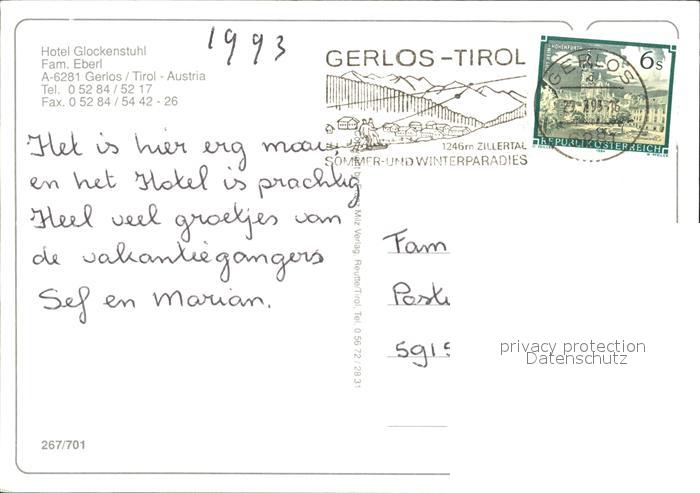 Hotel Glockenstuhl
Fam. Eberl
A-6281 Gerlos / Tirol - Austria
Tel. 0 52 84 / 52 17
Fax. 0 52 84 / 54 42 - 26
1993
GERLOS-TIROL
1246m ZILLERTAL
SOMMER-UND WINTERPARADIES
6 S
GERLOS
REPUBLIK ÖSTERREICH
Het is hier erg mooi,
en het Hotel is prachtig
Heel veel groetjes van
de vakantiegangers
Sef en Marian.
Milz Verlag, Reutte/Tirol, Tel. 0 56 72 / 28 31
Fam
Post
591
privacy protection
Datenschutz
267/701